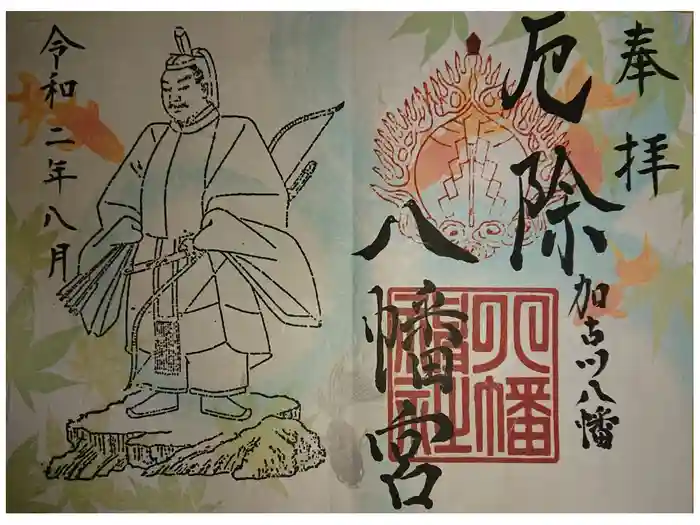 奉拝
厄除
加古川八幡
八幡宮
八幡
令和二年八月